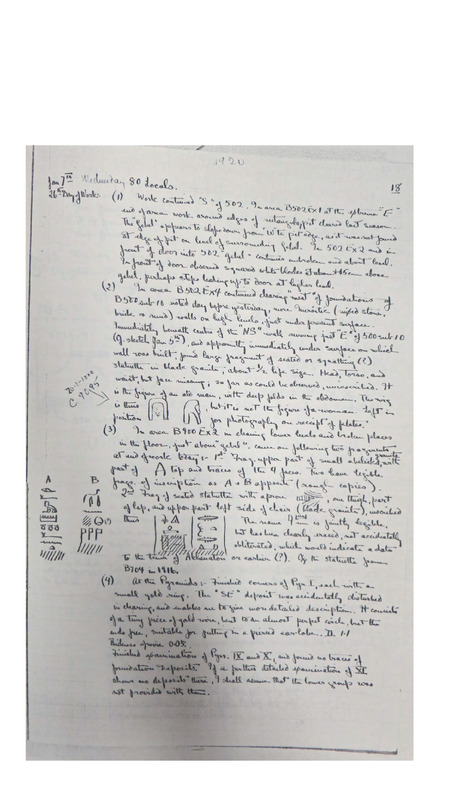 1920
18
Jan 7th Wednesday 80 Locals.
26th Day of Work
(1) Work continued "S" of 502. In area B502 Ex1 at the extreme "E"
end of area work around edges of rectangular pit cleared last season.
The gebel appears to slope down from W to pit edge, as it was not found
at edge of pit on level of surrounding gebel. In 502 Ex 2 and in
front of door into 502 "gebel" continues unbroken and about level.
In front of door observed squared white blocks 45cm above
gebel, perhaps steps leading up to door at higher level.
(2) In area B502 Ex4 continued clearing "west" of foundations of
B500 sub 10 noted day before yesterday, more "meroitic" (mixed stone,
brick & mud) walls on high levels, just under present surface.
Immediately beneath centre of the "NS" wall running just "E" of 500 sub 10
(q. sketch Jan 5th), and apparently immediately under surface on which
wall was built, found large fragment of seated or squatting (?)
statuette in black granite, about 1/2 life size. Head, torso, and
waist, but face missing, so far as could be observed, uninscribed. It
is the figure of an old man, with deep folds in the abdomen. The wig
is thus , but it is not the figure of a woman. Left in
position for photography on receipt of plates.
(3) In area B900 Ex2 in clearing lower levels and broken places
in the floor, just above "gebel", came on following two fragments
at end of work today:- 1st Frag. upper part of small obelisk, with
part of top and traces of the 4 faces. Two have legible
frags. of inscription as A & B opposite (rough copies).
A
B
2nd Frag of seated statuette with apron , one thigh, part
of leg, and upper part left side of chair (black granite), inscribed
thus
The name is faintly legible,
but has been clearly erased, not accidentally
obliterated, which would indicate a date
to the time of Akhenaton or earlier (?). Cf. the statuette from
B704 in 1916.
(4) At the Pyramids:- Finished corners of Pyr. I, each with a
small gold ring. The "SE" deposit was accidentally disturbed
in clearing, and enables me to give more detailed description. It consists
of a tiny piece of gold wire, bent to an almost perfect circle, but the
ends free, suitable for putting in a pierced ear-lobe.
Finished examinations of Pyrs. IX and X, and found no traces of
foundation "deposits". If a further detailed examination of XI
shows no deposits there, I shall assume that the lower groups was
not provided with them.